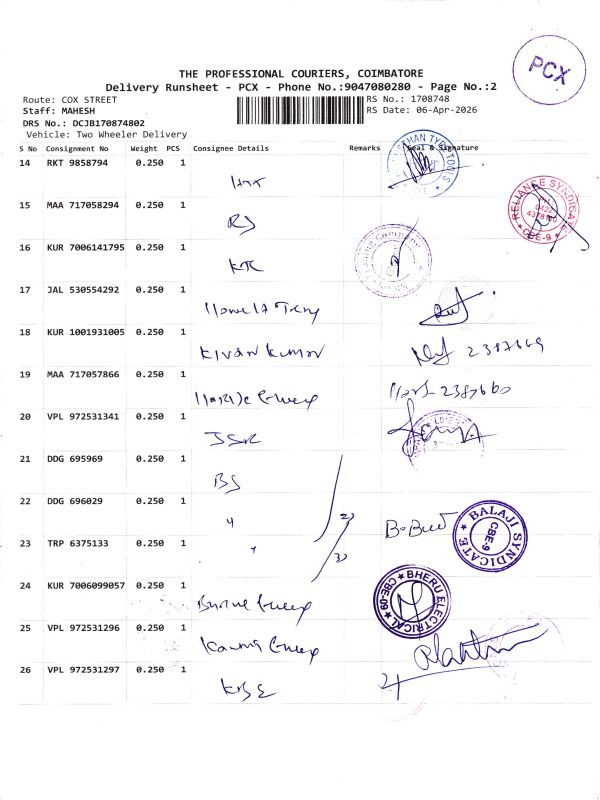 PCX
THE PROFESSIONAL COURIERS, COIMBATORE
Delivery Runsheet - PCX - Phone No.:9047080280 - Page No.:2
Route: COX STREET
RS No.: 1708748
Staff: MAHESH
RS Date: 06-Apr-2026
DRS No.: DCJB170874802
Vehicle: Two Wheeler Delivery
S No Consignment No Weight PCS Consignee Details Remarks Seal & Signature
14 RKT 9858794 0.250 1
15 MAA 717058294 0.250 1
RELIANCE SYNDICATE
CBE-9
RJ
16 KUR 7006141795 0.250 1
KTC
17 JAL 530554292 0.250 1
18 KUR 1001931005 0.250 1
Kivan Kumar 2387669
19 MAA 717057866 0.250 1
2387660
20 VPL 972531341 0.250 1
JSK
21 DDG 695969 0.250 1
BS
22 DDG 696029 0.250 1
BALAJI SYNDICATE
CBE-9
23 TRP 6375133 0.250 1
24 KUR 7006099057 0.250 1
BHERU ELECTRICAL
CBE-09
25 VPL 972531296 0.250 1
26 VPL 972531297 0.250 1
KBE